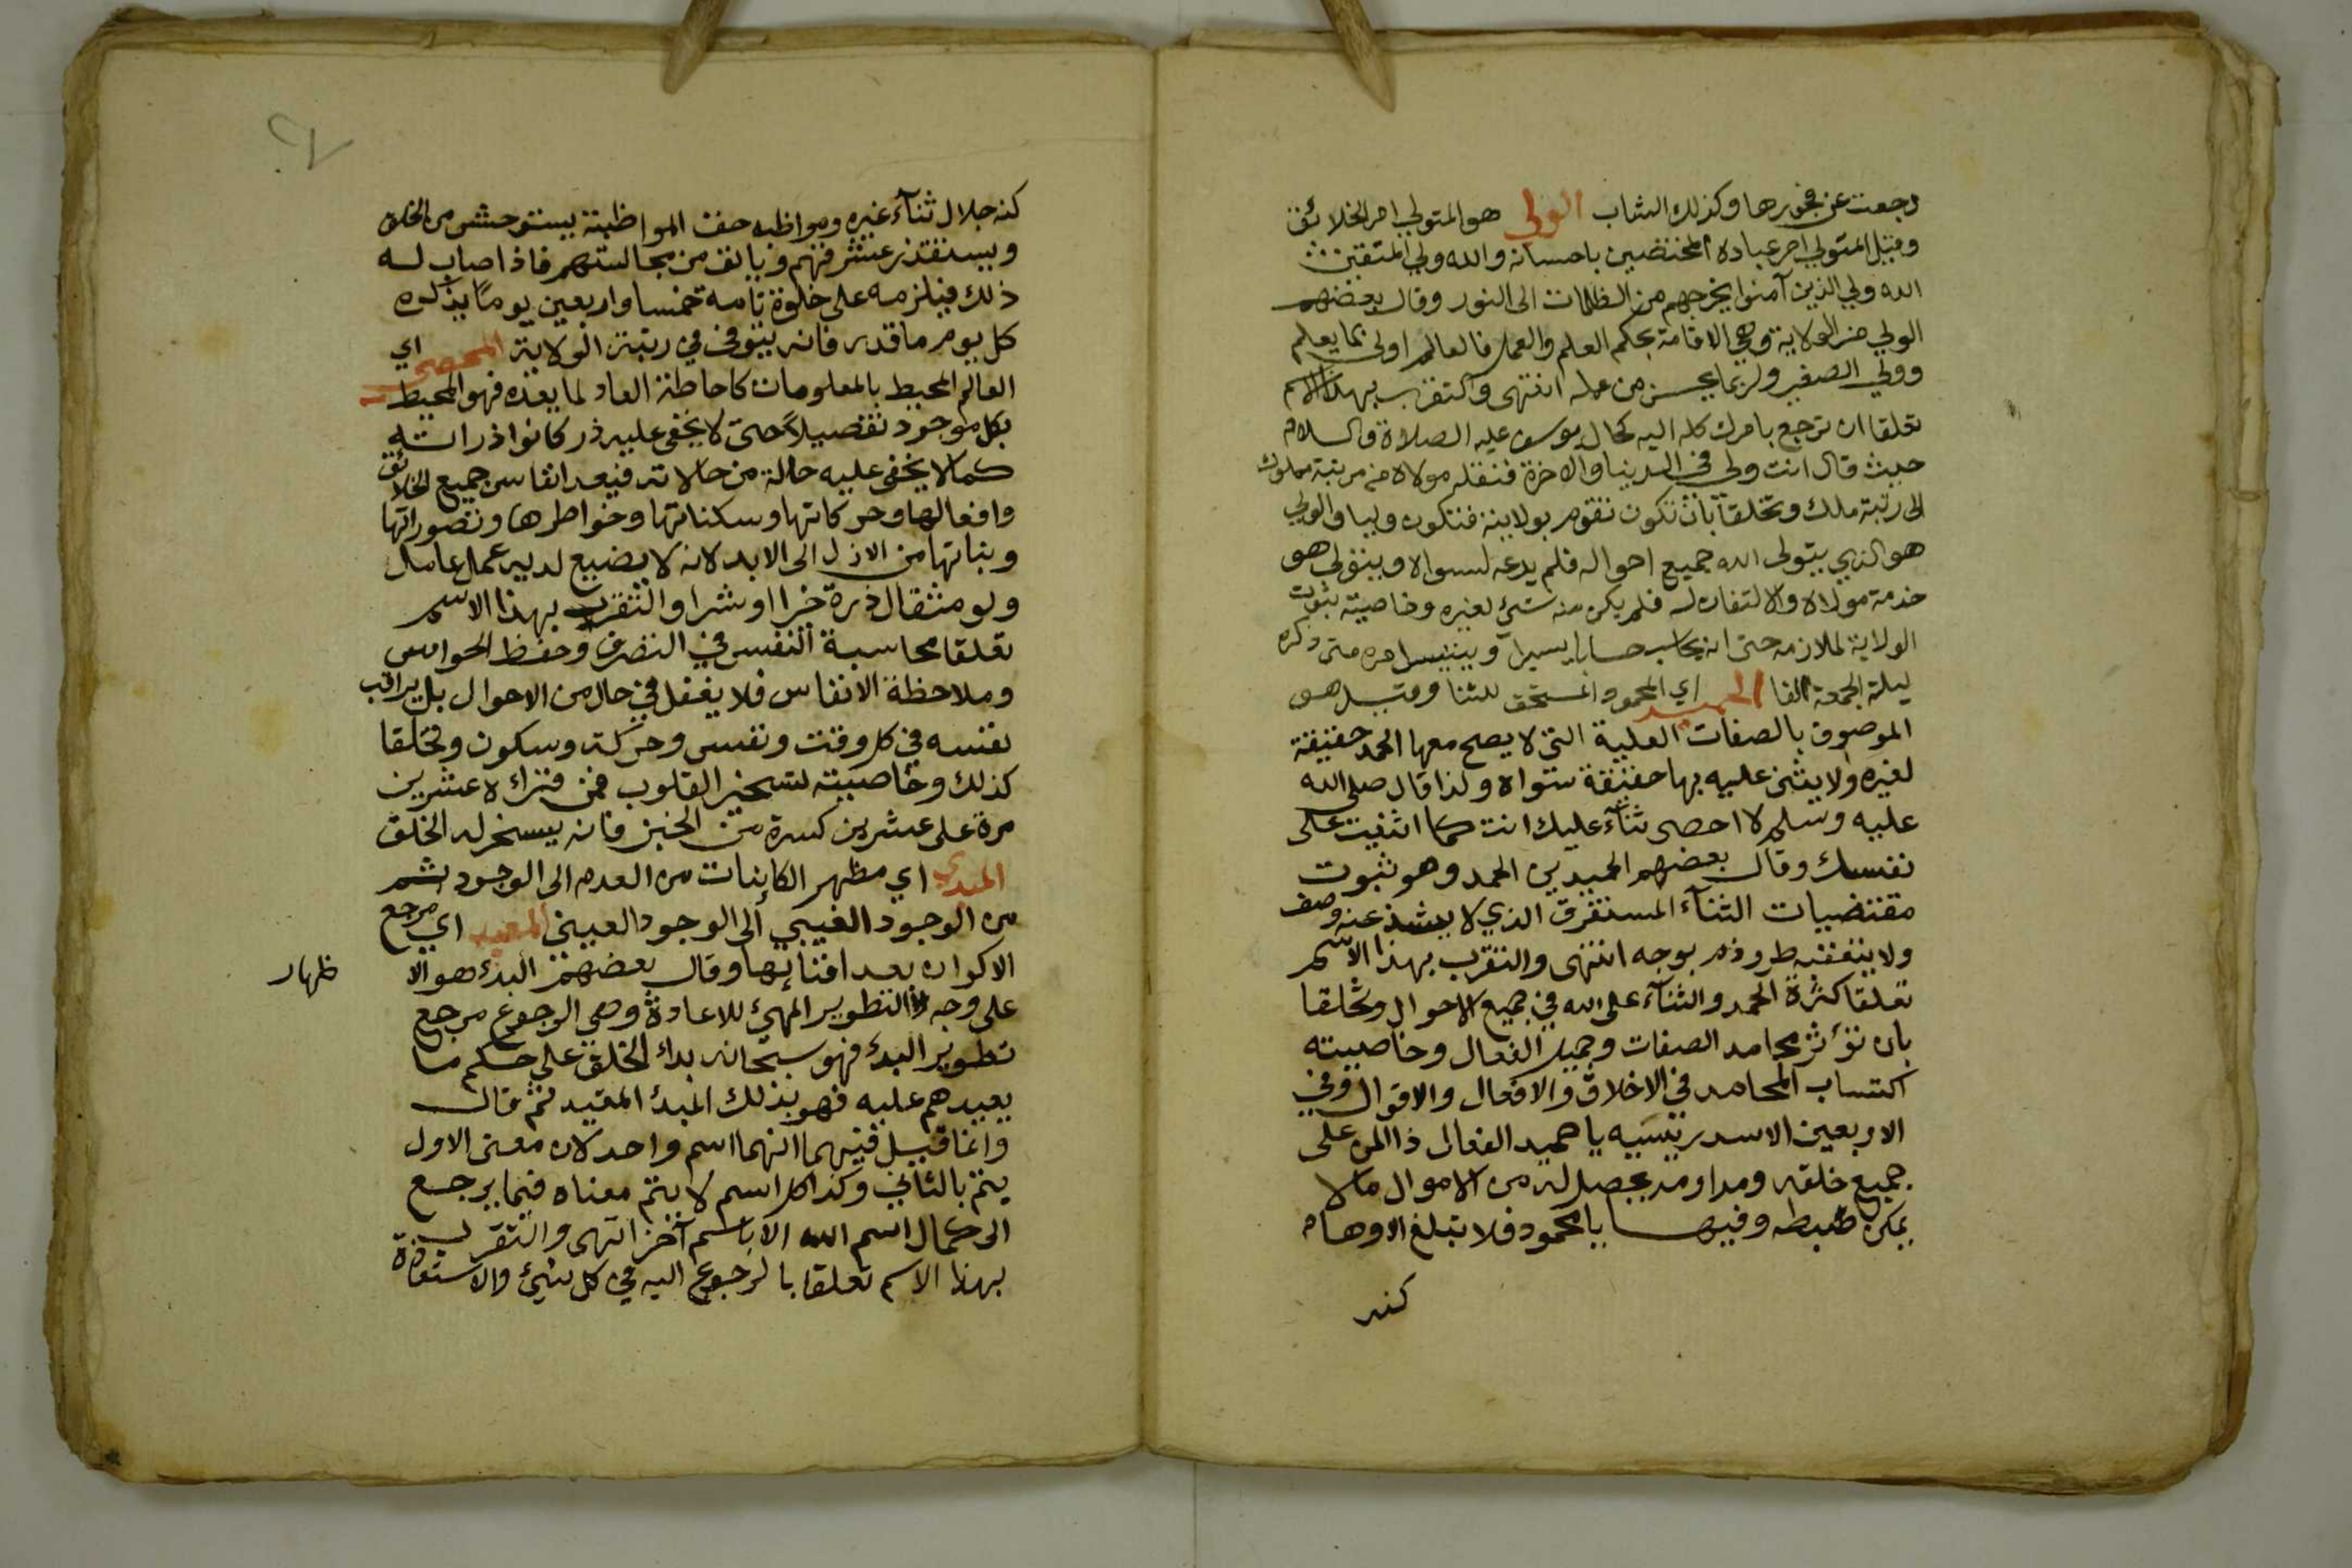 رجعت عن فجورها وكذلك الشاب الولي هو المتولي امر الخلائق
وقيل المتولي امر عباده المختصين باحسانه والله ولي المتقين
الله ولي الذين آمنوا يخرجهم من الظلمات الى النور وقال بعضهم
الولي من الولاية وهي الاقامة بحكم العلم والعمل فالعالم اولى بما يعلم
وولي الصغير ولي بما يحسن من عمله انتهى والتقرب بهذا الاسم
تعلقا ان ترجع بامرك كله اليه كحال يوسف عليه الصلاة والسلام
حيث قال انت ولي في الدنيا والاخرة فنقله مولاه من مرتبة مملوك
الى رتبة ملك وتخلقا بان تكون تقوم بولايته فتكون وليا والولي
هو الذي يتولى الله جميع احواله فلم يدعه لسواه ويتولى هو
خدمة مولاه والالتفات له فلم يكن منه شئ لغيره وخاصيته ثبوت
الولاية لملازمه حتى انه يحاسب حسابا يسيرا ويتيسر امره متى ذكره
ليلة الجمعة الفا الحميد اي المحمود المستحق للثنا وقيل هو
الموصوف بالصفات العلية التي لا يصح معها الحمد حقيقة
لغيره ولا يثنى عليه بها حقيقة سواه ولذا قال صلى الله
عليه وسلم لا احصى ثناء عليك انت كما اثنيت على
نفسك وقال بعضهم الحميد من الحمد وهو ثبوت
مقتضيات الثناء المستغرق الذي لا يشذ عنه وصف
ولا يتعقبه طرو ذم بوجه انتهى والتقرب بهذا الاسم
تعلقا كثرة الحمد والثناء على الله في جميع الاحوال وتخلقا
بان تؤثر محامد الصفات وجميل الفعال وخاصيته
اكتساب المحامد في الاخلاق والافعال والاقوال وفي
الاربعين الادريسيه يا حميد الفعال ذا المن على
جميع خلقه ومداومه يحصل له من الاموال مالا
يمكن ضبطه وفيها يا محمود فلا تبلغ الاوهام
كنه
كنه جلال ثناء غيره ومواظبه حق المواظبة يستوحش من الخلق
ويستقذر عشرتهم ويانف من مجالستهم فاذا اصاب له
ذلك فيلزمه على خلوة تامة خمسا واربعين يوما يذكره
كل يوم ما قدر فانه يتوفى في رتبة الولاية المحصي اي
العالم المحيط بالمعلومات كاحاطة العاد لما يعده فهو المحيط
بكل موجود تفصيلا حتى لا يخفى عليه ذركانوا ذراته
كما لا يخفى عليه حالة من حالاته فيعد انفاس جميع الخلائق
وافعالها وحركاتها وسكناتها وخواطرها وتصوراتها
ونياتها من الازل الى الابد لانه لا يضيع لديه عمل عامل
ولو مثقال ذرة خيرا او شرا والتقرب بهذا الاسم
تعلقا محاسبة النفس في التصرف وحفظ الحواس
وملاحظة الانفاس فلا يغفل في حال من الاحوال بل يراقب
نفسه في كل وقت ونفس وحركة وسكون وتخلقا
كذلك وخاصيته تسخير القلوب فمن قراه عشرين
مرة على عشرين كسرة من الخبز فانه يسخر له الخلق
المبدي اي مظهر الكاينات من العدم الى الوجود ثم
من الوجود الغيبي الى الوجود العيني المعيد اي مرجع
الاكوان بعد افنائها وقال بعضهم البدء هو الا ظهار
على وجه التطوير المهيئ للاعادة وهي الرجوع مرجع
تطوير البدء فهو سبحانه بدا الخلق على حكم ما
يعيدهم عليه فهو بذلك المبدئ المعيد ثم قال
وانما قيل فيهما انهما اسم واحد لان معنى الاول
يتم بالثاني وكذا كل اسم لا يتم معناه فيما يرجع
الى كمال اسم الله الا باسم آخر انتهى والتقرب
بهذا الاسم تعلقا بالرجوع اليه في كل شئ والاستعاذة